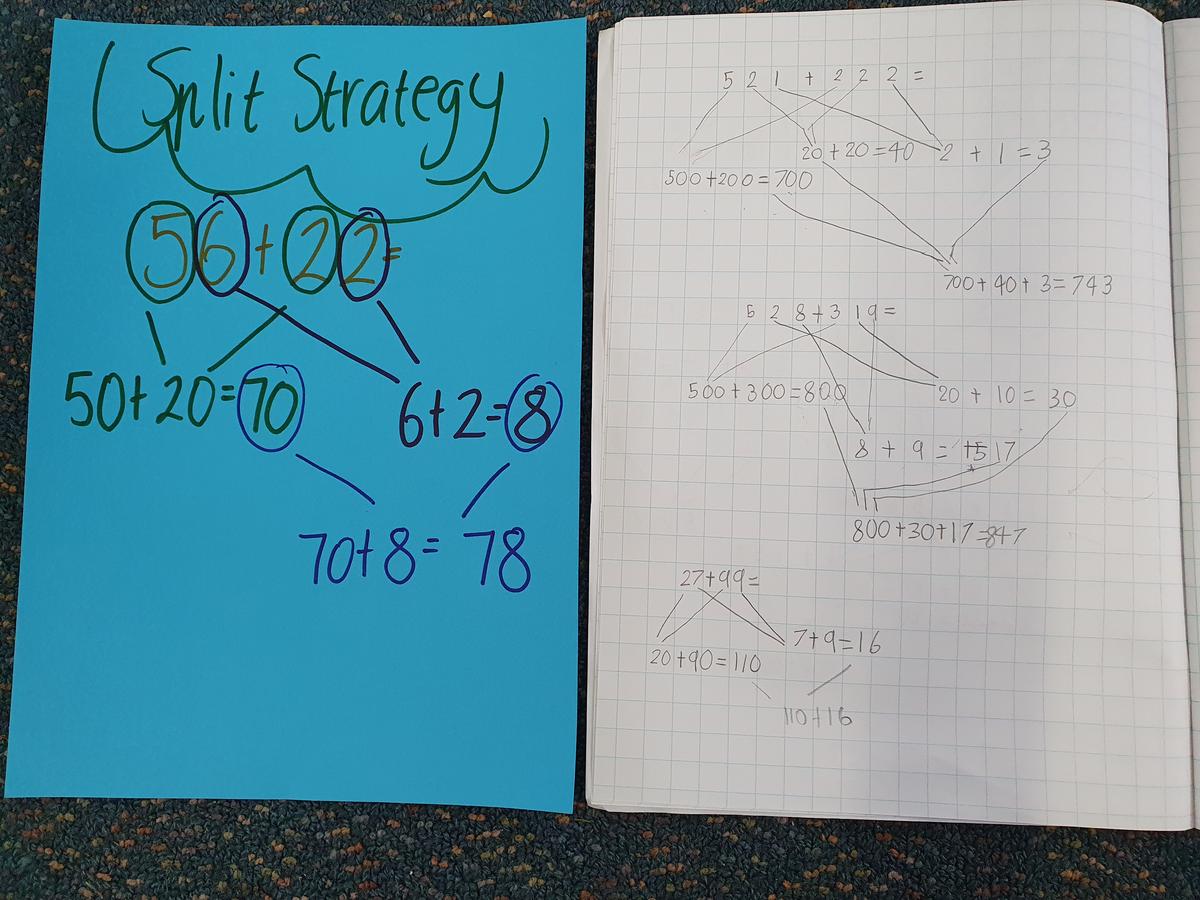 Split Strategy
56+22=
50+20=70
6+2=8
70+8=78
521+222=
20+20=40
2+1=3
500+200=700
700+40+3=743
528+319=
500+300=800
20+10=30
8+9=17
800+30+17=847
27+99=
7+9=16
20+90=110
110+16